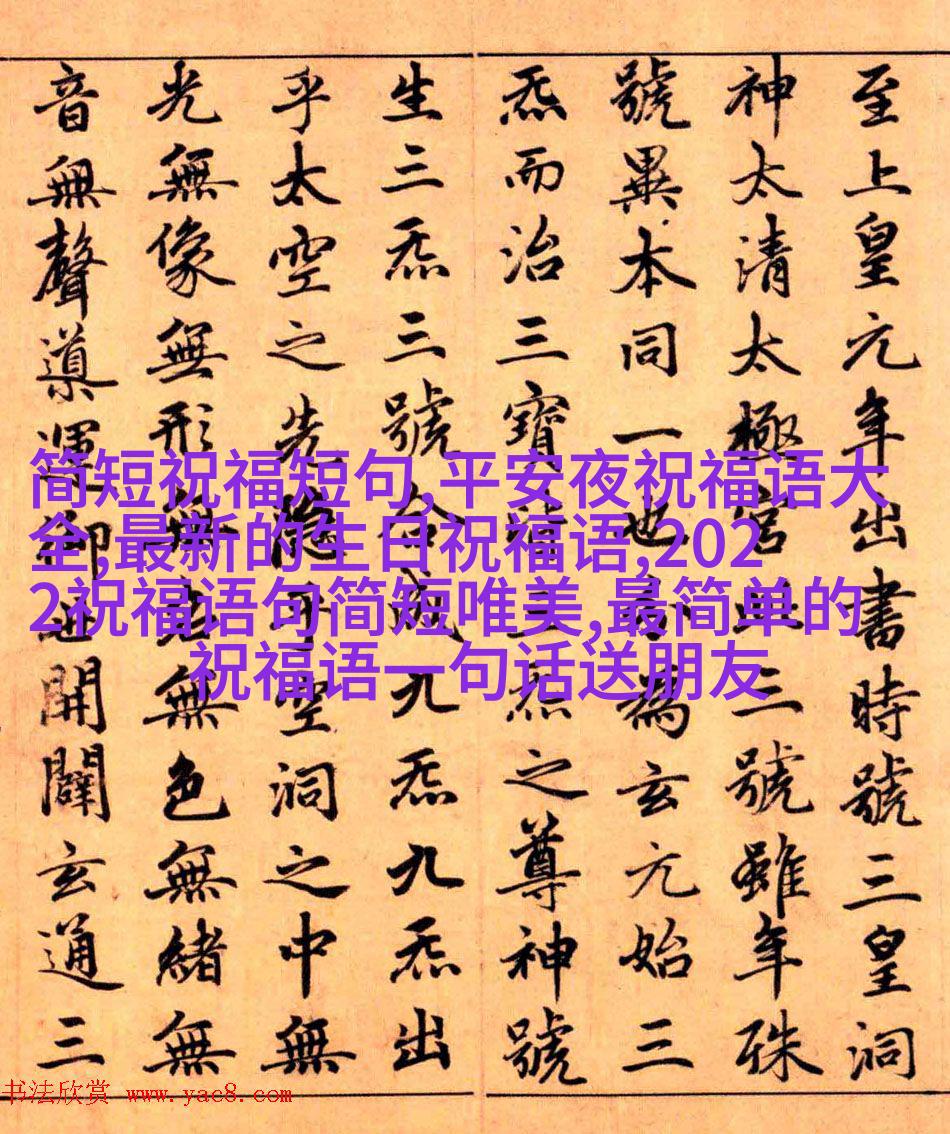 至上皇元年出書時號三皇洞
神太清太極宮三號雖年殊
號異本同一也為玄元始三
炁而治三寶皆三炁之尊神號
生三炁三號合成九炁九炁出
乎太空之先隱乎空洞之中無
光無像無形無名無色無緒無
音無聲導運御世開闢玄通三
简短祝福短句,平安夜祝福语大
全,最新的生日祝福语,202
2祝福语句简短唯美,最简单的
祝福语一句话送朋友
书法欣赏 www.yac8.com